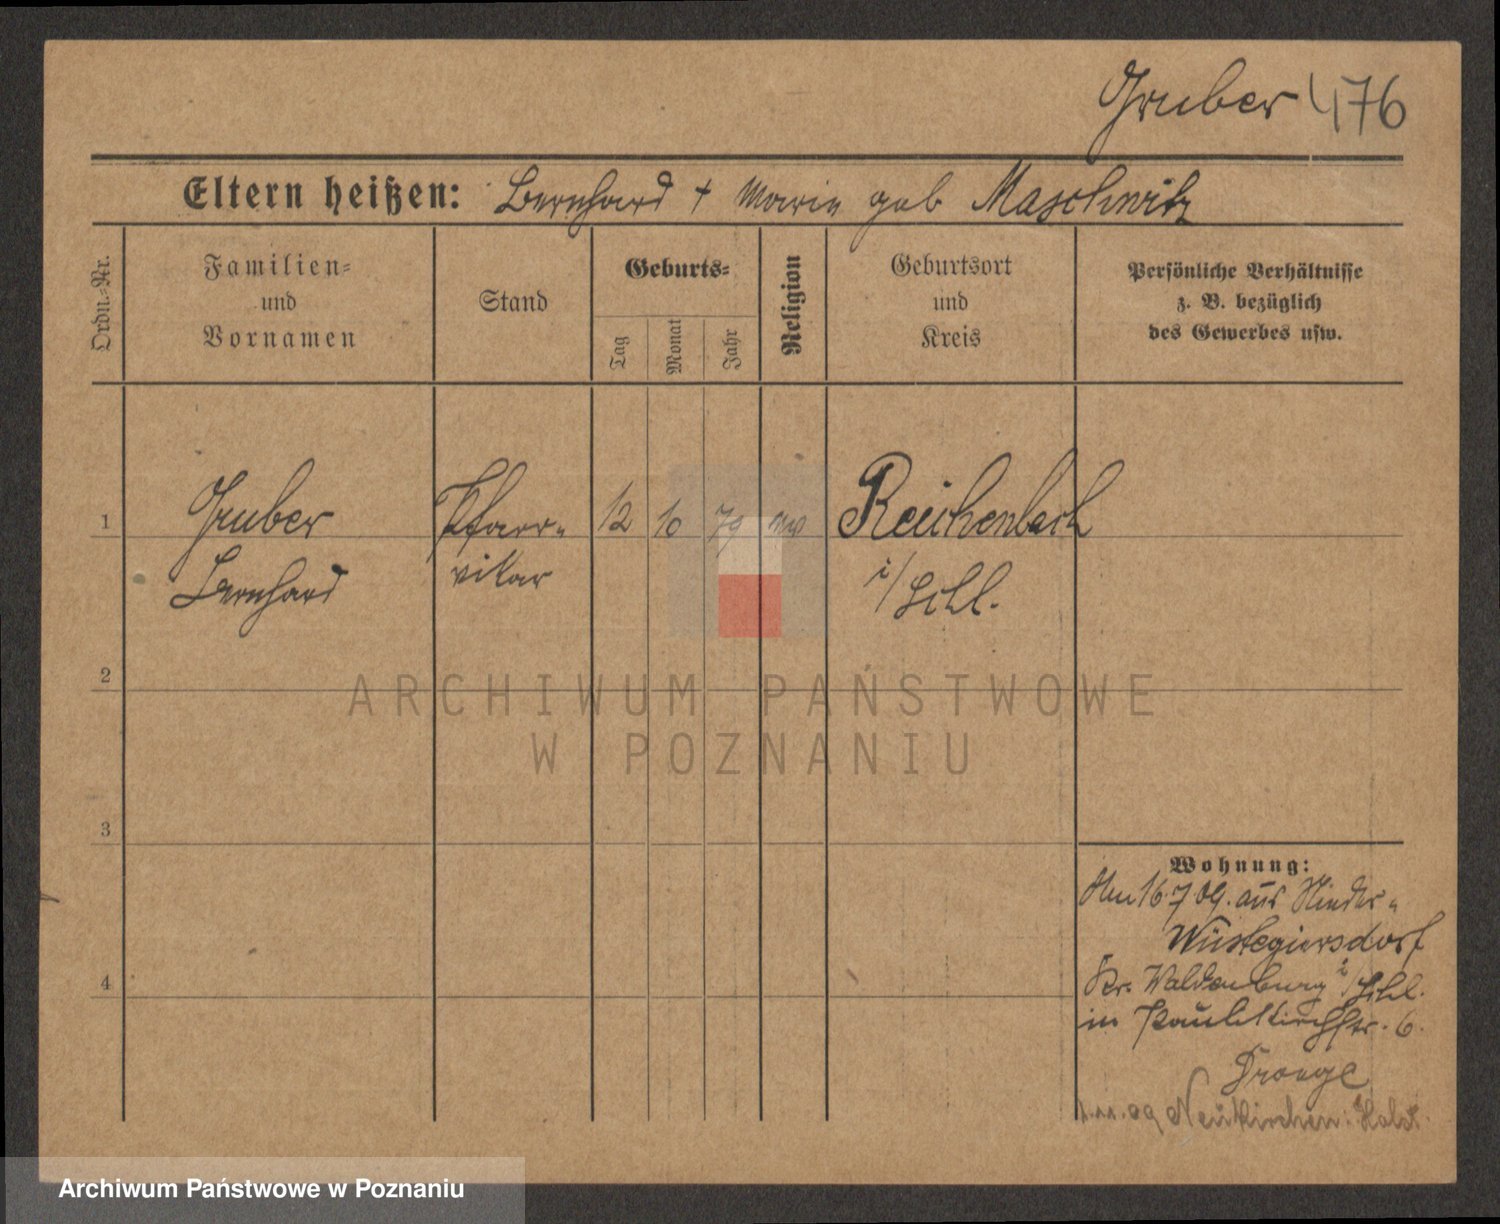 Gruber 476
Eltern heißen: Bernhard + Marie geb Maschwitz
Ordn.-Nr.
Familien-
und
Vornamen
Stand
Geburts-
Tag
Monat
Jahr
Religion
Geburtsort
und
Kreis
Persönliche Verhältnisse
z. B. bezüglich
des Gewerbes usw.
1
Gruber
Pfarr-
12
10
79
ev
Reichenbach
Bernhard
vikar
i/Schl.
2
ARCHIWUM PAŃSTWOWE
W POZNANIU
3
Wohnung:
Am 16.7 09. aus Nieder-
Wüstegiersdorf
4
Kr. Waldenburg i/Schl.
in Paulikirchstr. 6.
Droege
1.11.09 Neukirchen i. Holst.
Archiwum Państwowe w Poznaniu